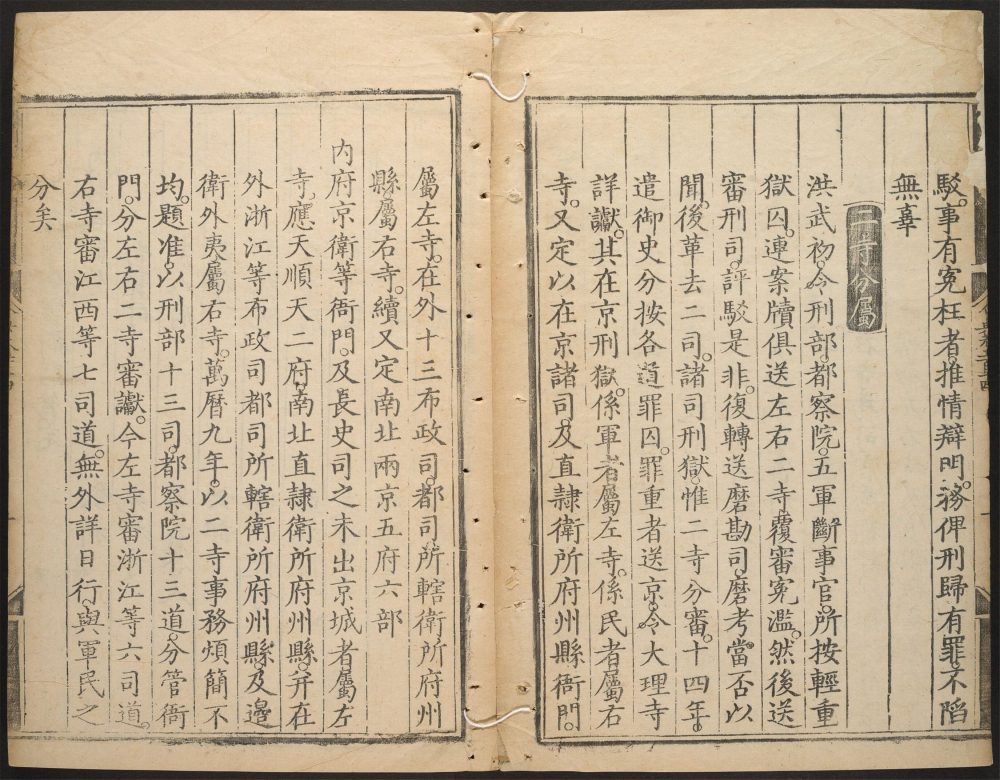 駁。事有冤枉者。推情辯明。務俾刑歸有罪。不陷
無辜
二寺分屬
洪武初。令刑部。都察院。五軍斷事官。所按輕重
獄囚。連案牘俱送左右二寺。覆審冤濫。然後送
審刑司。評駁是非。復轉送磨勘司。磨考當否。以
聞。後革去二司。諸司刑獄。惟二寺分審。十四年。
遣御史分按各道罪囚。罪重者送京。令大理寺
詳讞。其在京刑獄。係軍者屬左寺。係民者屬右
寺。又定以在京諸司。及直隷衛所府州縣衙門。
屬左寺。在外十三布政司。都司。所轄衛所府州
縣屬右寺。續又定南北兩京五府六部
內府京衛等衙門。及長史司之未出京城者屬左
寺。應天順天二府。南北直隷衛所府州縣。并在
外浙江等布政司都司所轄衛所府州縣。及邊
衛外夷屬右寺。萬曆九年。以二寺事務煩簡不
均。題准。以刑部十三司。都察院十三道。分管衙
門。分左右二寺審讞。今左寺審浙江等六司道。
右寺審江西等七司道。無外詳日行。與軍民之
分矣